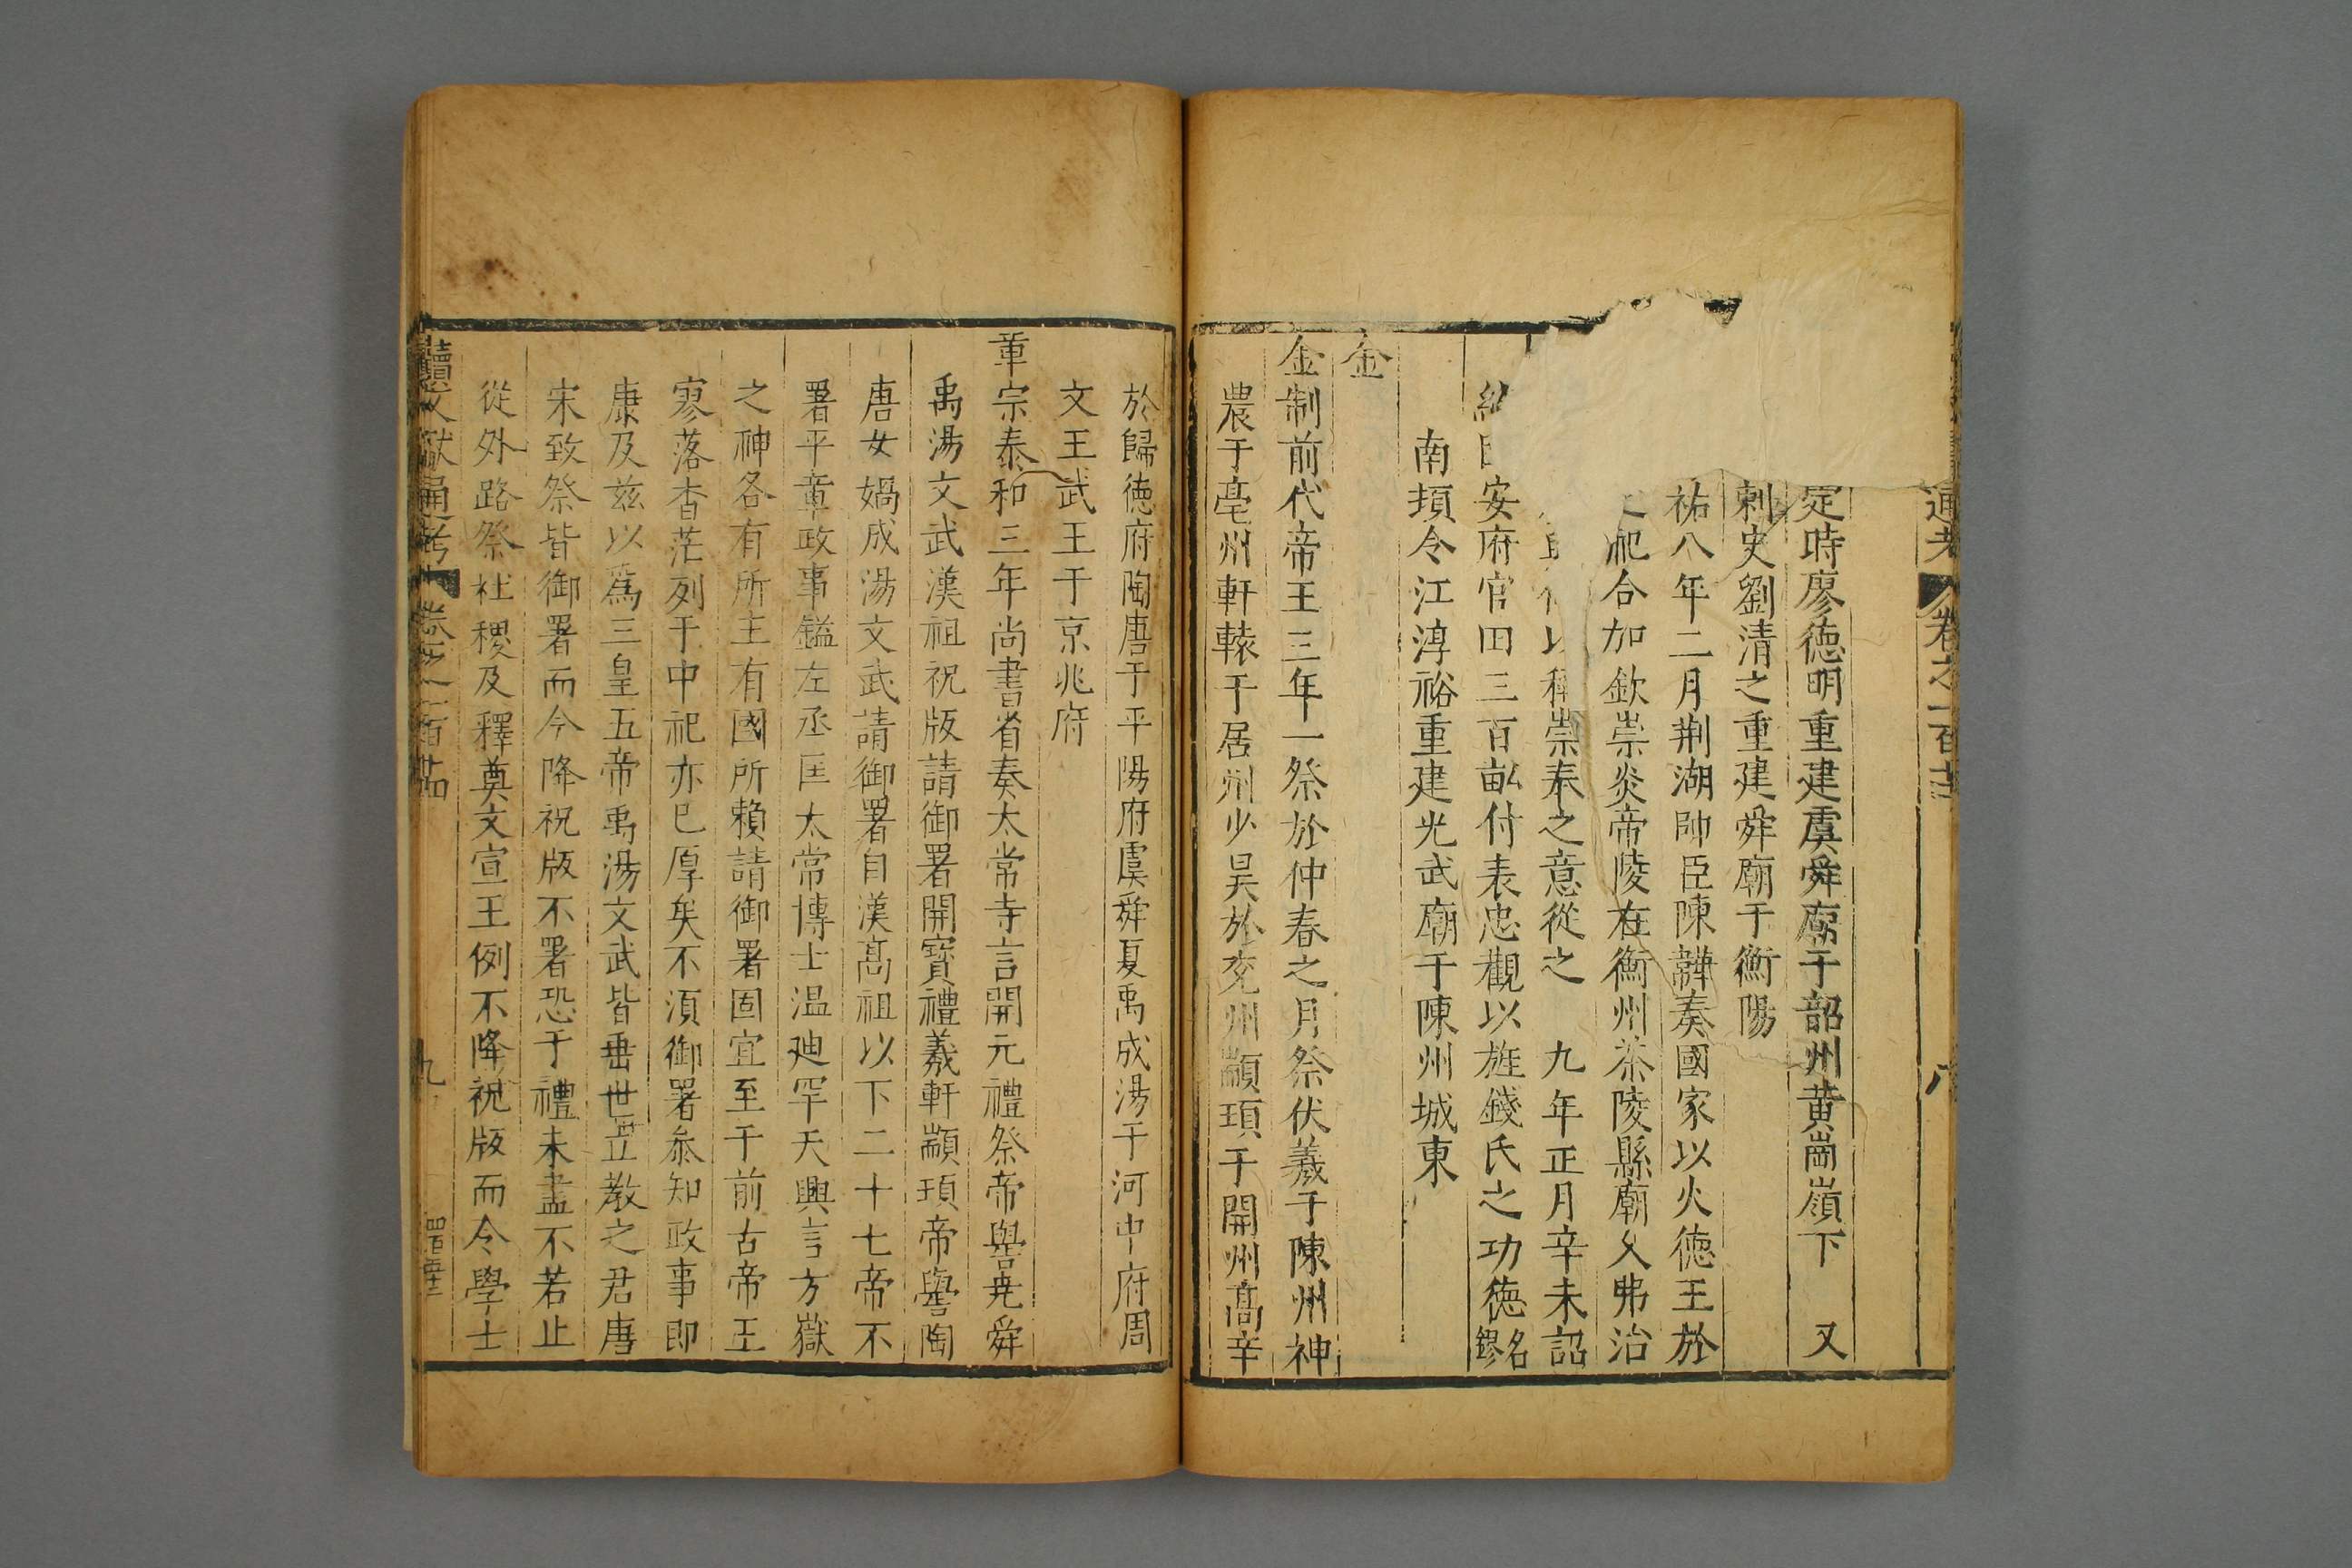 通考 卷之一百十四 八
定時廖德明重建虞舜廟于韶州黃崗嶺下 又
刺史劉清之重建舜廟于衡陽
祐八年二月荆湖帥臣陳韡奏國家以火德王於
祀合加欽崇炎帝陵在衡州茶陵縣廟久弗治
崇奉之意從之 九年正月辛未詔
安府官田三百畝付表忠觀以旌錢氏之功德名鏐
南頊令江淳裕重建光武廟于陳州城東
金
金制前代帝王三年一祭於仲春之月祭伏羲于陳州神
農于亳州軒轅于居州少昊於兗州顓頊于開州高辛
於歸德府陶唐于平陽府虞舜夏禹成湯于河中府周
文王武王于京兆府
章宗泰和三年尚書省奏太常寺言開元禮祭帝嚳堯舜
禹湯文武漢祖祝版請御署開寶禮羲軒顓頊帝嚳陶
唐女媧成湯文武請御署自漢高祖以下二十七帝不
署平章政事鎰左丞匡太常博士温廸罕天興言方嶽
之神各有所主有國所賴請御署固宜至于前古帝王
寥落杳茫列于中祀亦已厚矣不湏御署叅知政事即
康及兹以爲三皇五帝禹湯文武皆垂世立教之君唐
宋致祭皆御署而今降祝版不署恐于禮未盡不若止
從外路祭社稷及釋奠文宣王例不降祝版而令學士
續文獻通考 卷之一百十四 九